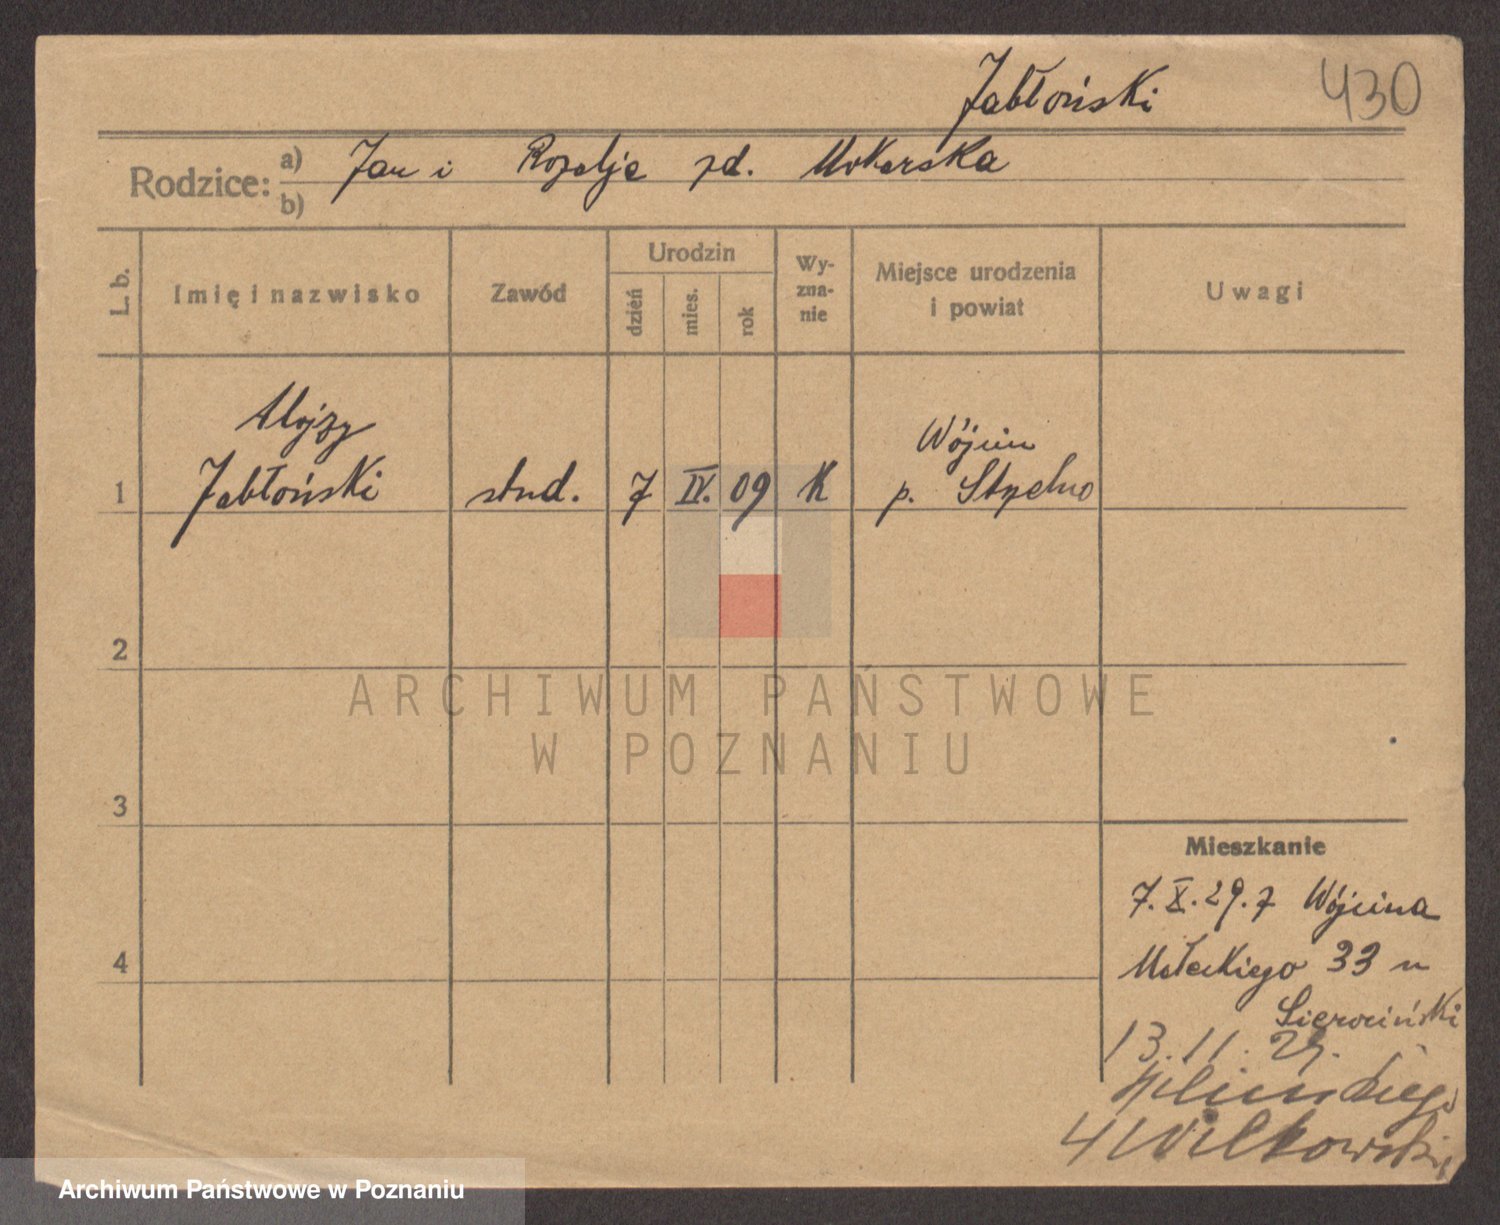 Jabłoński
430
Rodzice: a) Jan i Rozalja zd. Mokarska
b)
L. b.
Imię i nazwisko
Zawód
Urodzin
dzień
mies.
rok
Wy-
zna-
nie
Miejsce urodzenia
i powiat
Uwagi
Alojzy
Jabłoński
1
stud.
7
IV.
09
K
Wójcin
p. Strzelno
2
ARCHIWUM PAŃSTWOWE
W POZNANIU
3
Mieszkanie
7. X. 29. z Wójcina
Małeckiego 33 u
Sierociński
4
13. 11. 29.
4 Wilkowski
Archiwum Państwowe w Poznaniu